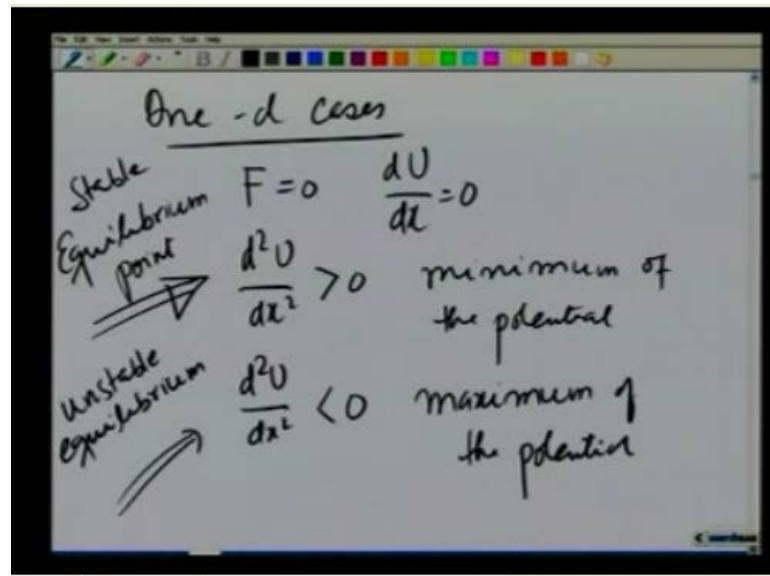 One-d cases
Stable
Equilibrium
point
F = 0 dU/dx = 0
d²U/dx² > 0 minimum of
the potential
unstable
equilibrium
d²U/dx² < 0 maximum of
the potential